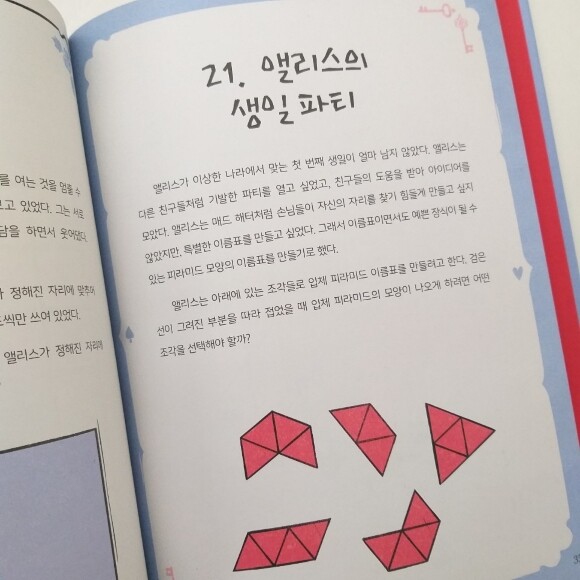 를 여는 것을 멈출 수
보고 있었다. 그는 서로
담을 하면서 웃어댔다.
정해진 자리에 맞추어
씩만 쓰여 있었다.
앨리스가 정해진 자리에
21. 앨리스의
생일 파티
앨리스가 이상한 나라에서 맞는 첫 번째 생일이 얼마 남지 않았다. 앨리스는
다른 친구들처럼 기발한 파티를 열고 싶었고, 친구들의 도움을 받아 아이디어를
모았다. 앨리스는 매드 해터처럼 손님들이 자신의 자리를 찾기 힘들게 만들고 싶지
않았지만, 특별한 이름표를 만들고 싶었다. 그래서 이름표이면서도 예쁜 장식이 될 수
있는 피라미드 모양의 이름표를 만들기로 했다.
앨리스는 아래에 있는 조각들로 입체 피라미드 이름표를 만들려고 한다. 검은
선이 그려진 부분을 따라 접었을 때 입체 피라미드의 모양이 나오게 하려면 어떤
조각을 선택해야 할까?